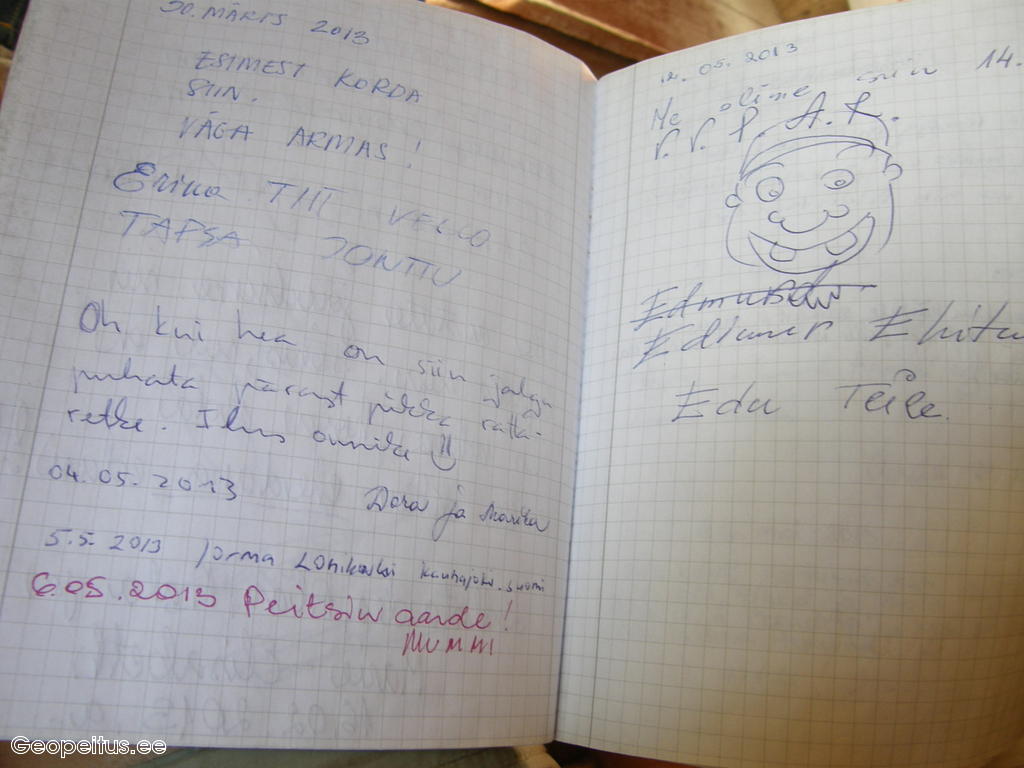 30. MÄRTS 2013
ESIMEST KORDA
SIIN.
VÄGA ARMAS!
Erika TIII VELLO
TAPSA JONTTU
Oh kui hea on siin jalgu
puhata pärast pikka ratta-
retke. Ilus onnike
04.05.2013
Dora ja Marika
5.5. 2013 Jorma Kauhajoki. Suomi
6.05.2013 Peitsin aarde!
MUMMI
12. 05. 2013
Me olime siin 14.
V. V. P. A. R.
Edu Teile.
Geopeitus.ee